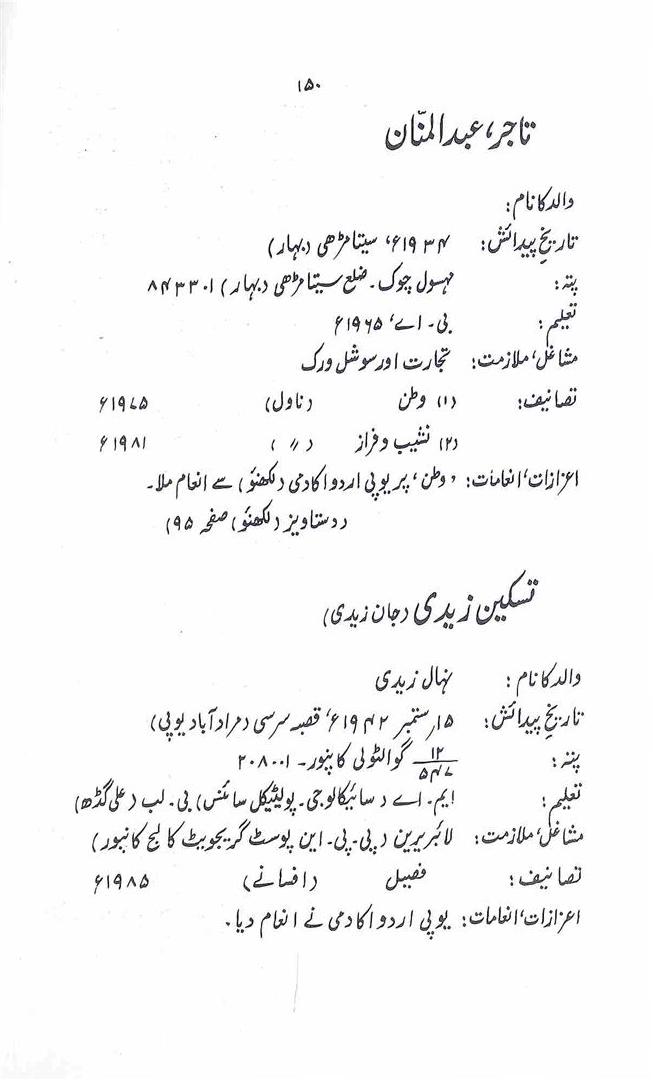 ۱۵۰
تاجر، عبدالمنّان
والد کا نام:
تاریخِ پیدائش: ۱۹۳۴ء، سیتامڑھی (بہار)
پتہ: مہسول چوک۔ ضلع سیتامڑھی (بہار) ۸۴۳۳۰۱
تعلیم: بی۔ اے، ۱۹۶۵ء
مشاغل، ملازمت: تجارت اور سوشل ورک
تصانیف: (۱) وطن (ناول) ۱۹۷۵ء
(۲) نشیب و فراز (〃) ۱۹۸۱ء
اعزازات، انعامات: ’وطن‘ پر یوپی اردو اکادمی (لکھنؤ) سے انعام ملا۔
(دستاویز (لکھنؤ) صفحہ ۹۵)
تسکین زیدی (جان زیدی)
والد کا نام: نہال زیدی
تاریخِ پیدائش: ۱۵؍ ستمبر ۱۹۴۲ء، قصبہ سرسی (مرادآباد یوپی)
پتہ: ۱۲/۵۴۷ گوالٹولی کانپور۔ ۲۰۸۰۰۱
تعلیم: ایم۔ اے (سائیکالوجی۔ پولیٹیکل سائنس) بی۔ لب (علی گڈھ)
مشاغل، ملازمت: لائبریرین (پی۔ پی۔ این پوسٹ گریجویٹ کالج کانپور)
تصانیف: فصیل (افسانے) ۱۹۸۵ء
اعزازات، انعامات: یوپی اردو اکادمی نے انعام دیا۔